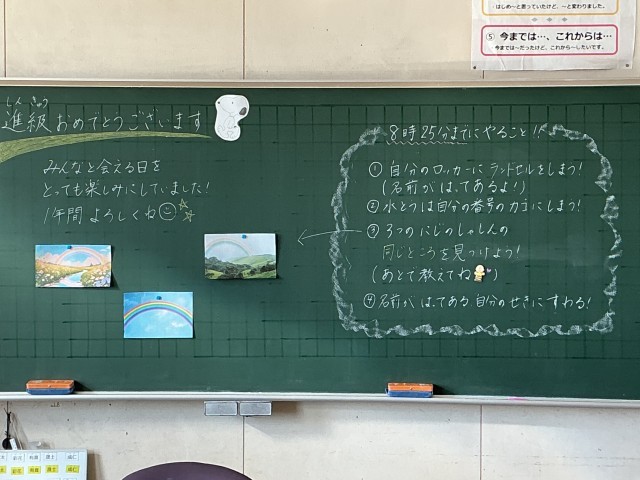 はじめ〜と思っていたけど、〜と変わりました。
⑤ 今までは…、これからは…
今までは〜だったけど、これから〜したいです。
しん きゅう
進級おめでとうございます
みんなと会える日を
とっても楽しみにしていました!
1年間 よろしくね
8時25分までにやること!!
① 自分のロッカーにランドセルをしまう!
(名前がはってあるよ!)
② 水とうは自分の番号のカゴにしまう!
③ 3つのにじのしゃしんの
同じところを見つけよう!
(あとで教えてね)
④ 名前がはってある自分のせきにすわる!